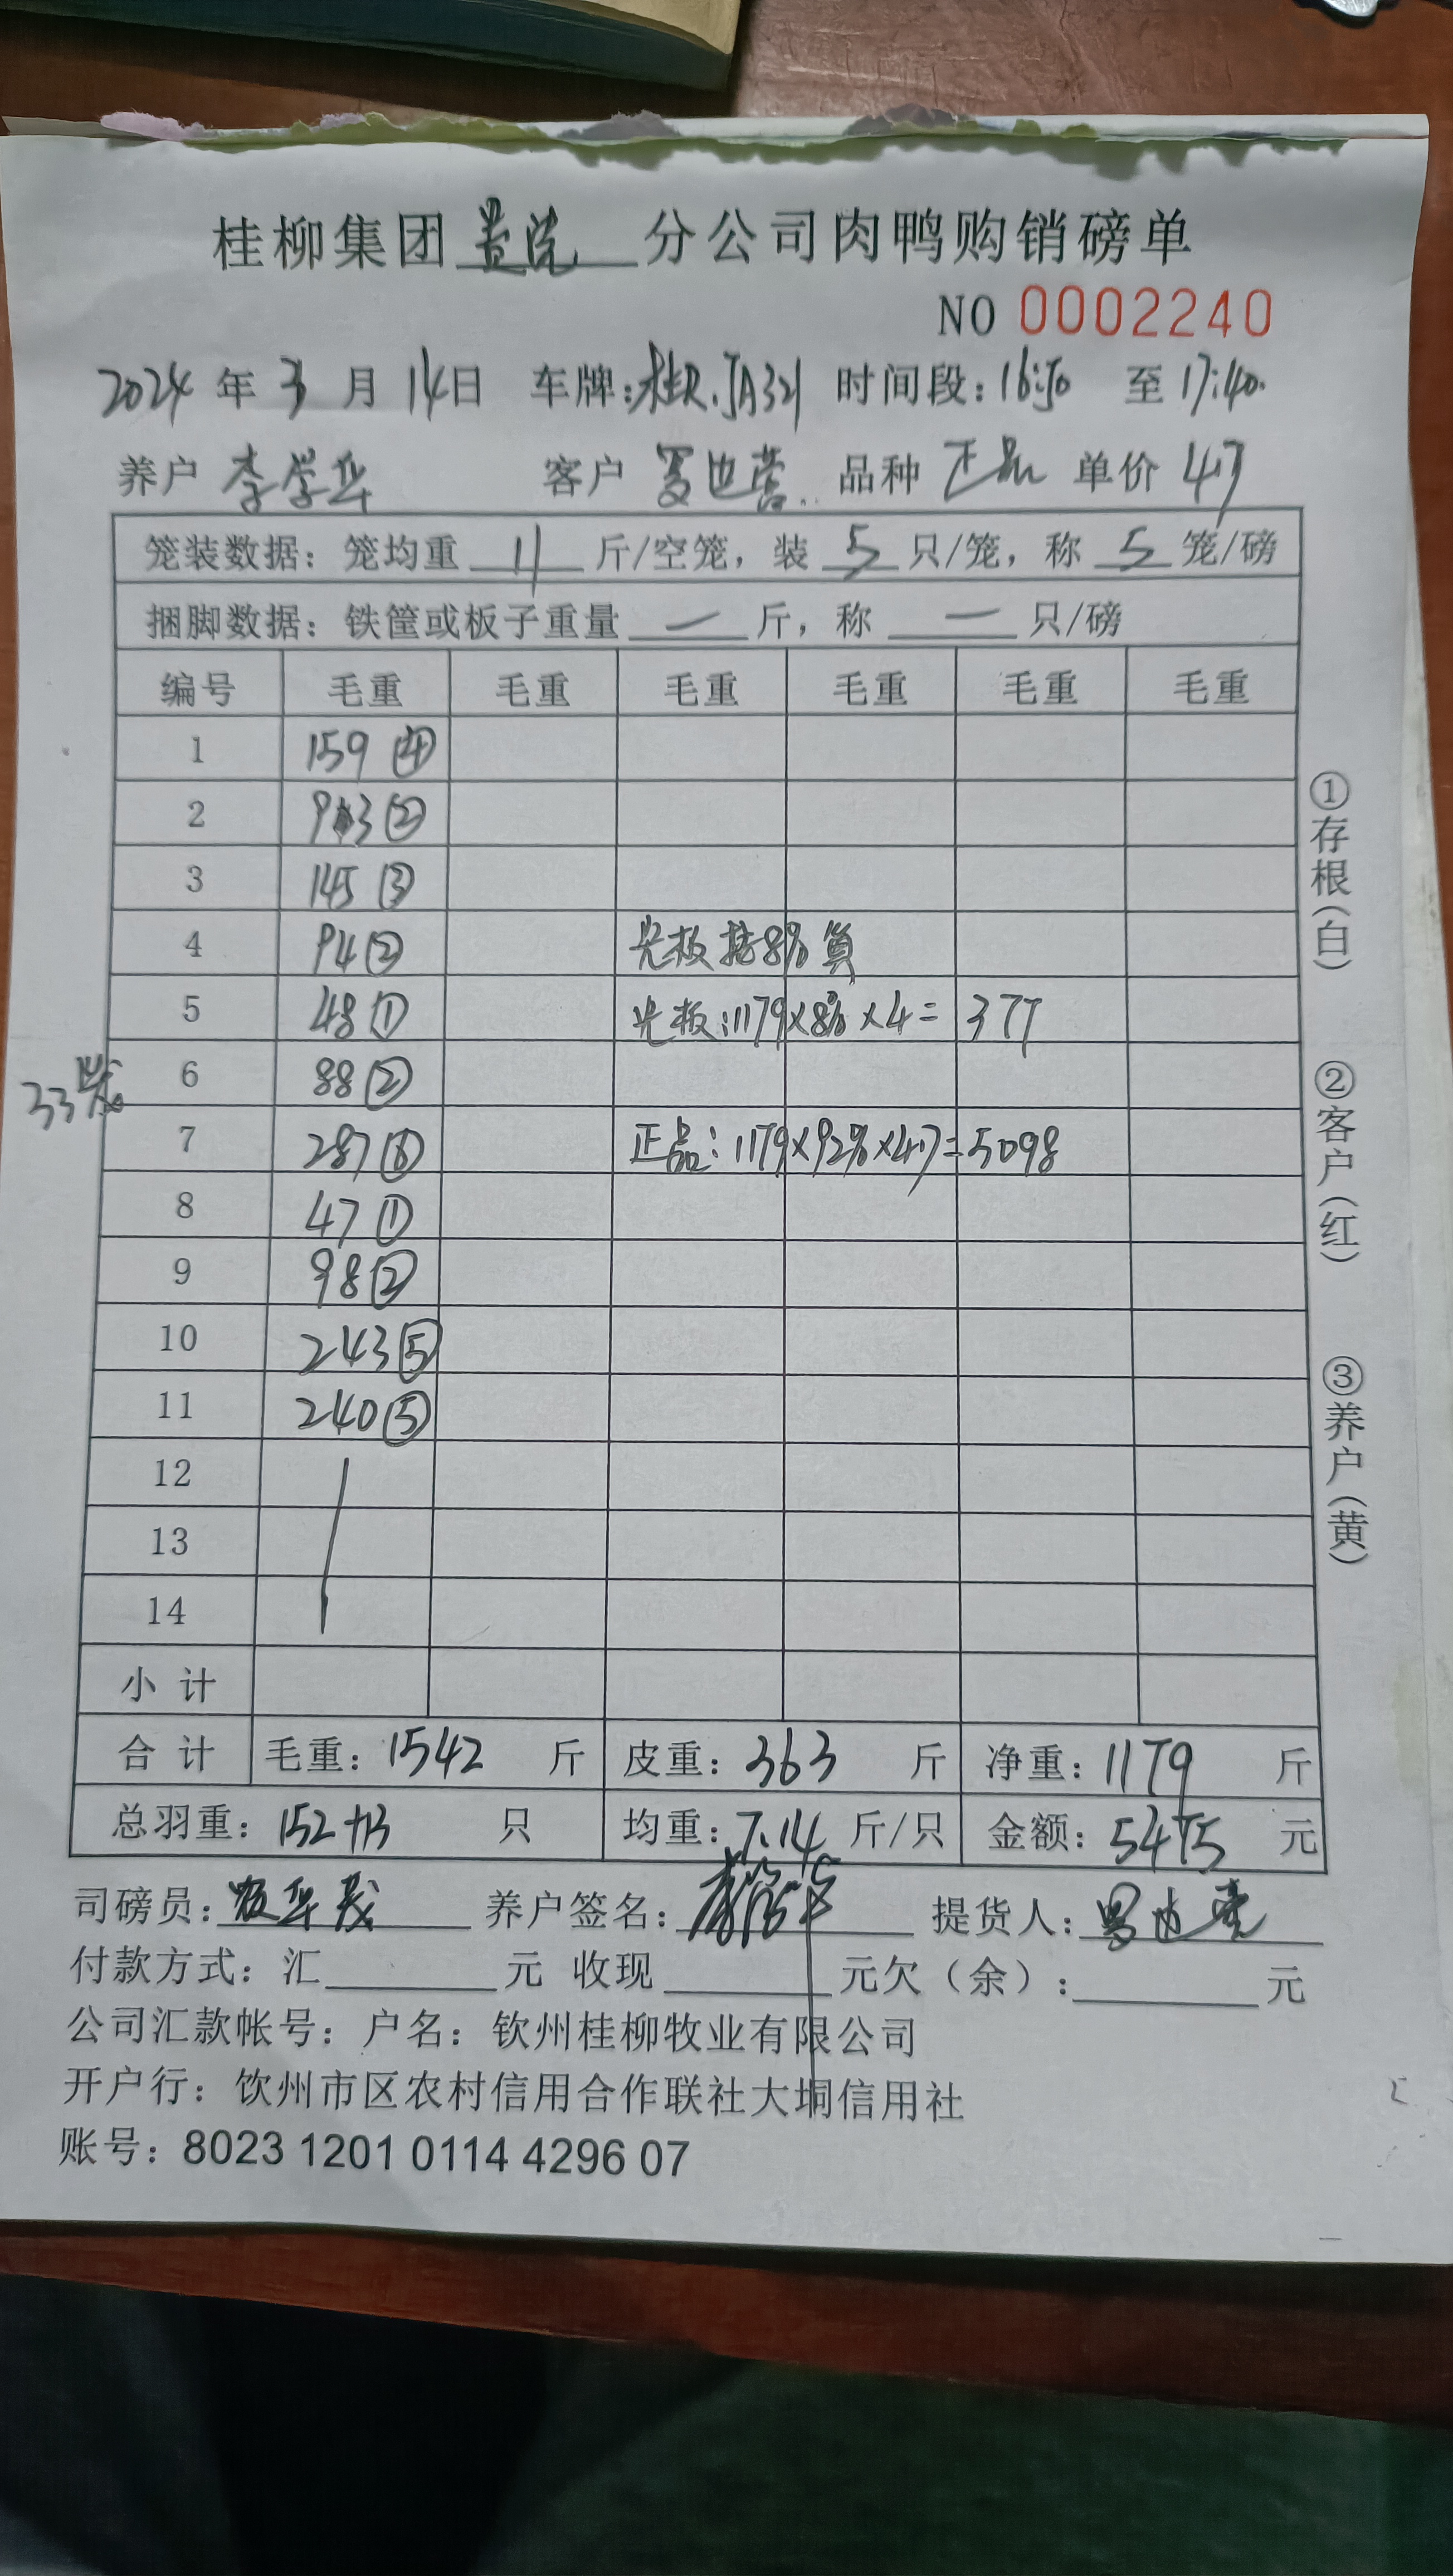 桂柳集团 分公司肉鸭购销磅单
NO 0002240
2024 年 3 月 14日 车牌:桂R.JA321 时间段:16:50 至17:40.
养户 李学华 客户 品种 正品 单价 4.7
笼装数据: 笼均重 11 斤/空笼, 装 5 只/笼, 称 5 笼/磅
捆脚数据: 铁筐或板子重量 — 斤, 称 — 只/磅
编号 毛重 毛重 毛重 毛重 毛重 毛重
1 159 ④
2 93 ②
3 145 ③
4 94 ② 光板按8%算
5 48 ① 光板:1179×8%×4= 377
6 88 ②
33笼
7 287 ⑥ 正品:1179×92%×4.7=5098
8 47 ①
9 98 ②
10 243 ⑤
11 240 ⑤
12
13
14
小计
合计 毛重: 1542 斤 皮重: 363 斤 净重: 1179 斤
总羽重: 152+13 只 均重: 7.14 斤/只 金额: 5475 元
司磅员: 养户签名: 提货人:
付款方式: 汇 元 收现 元欠(余): 元
公司汇款帐号: 户名: 钦州桂柳牧业有限公司
开户行: 饮州市区农村信用合作联社大垌信用社
账号: 8023 1201 0114 4296 07
①存根(白)
②客户(红)
③养户(黄)